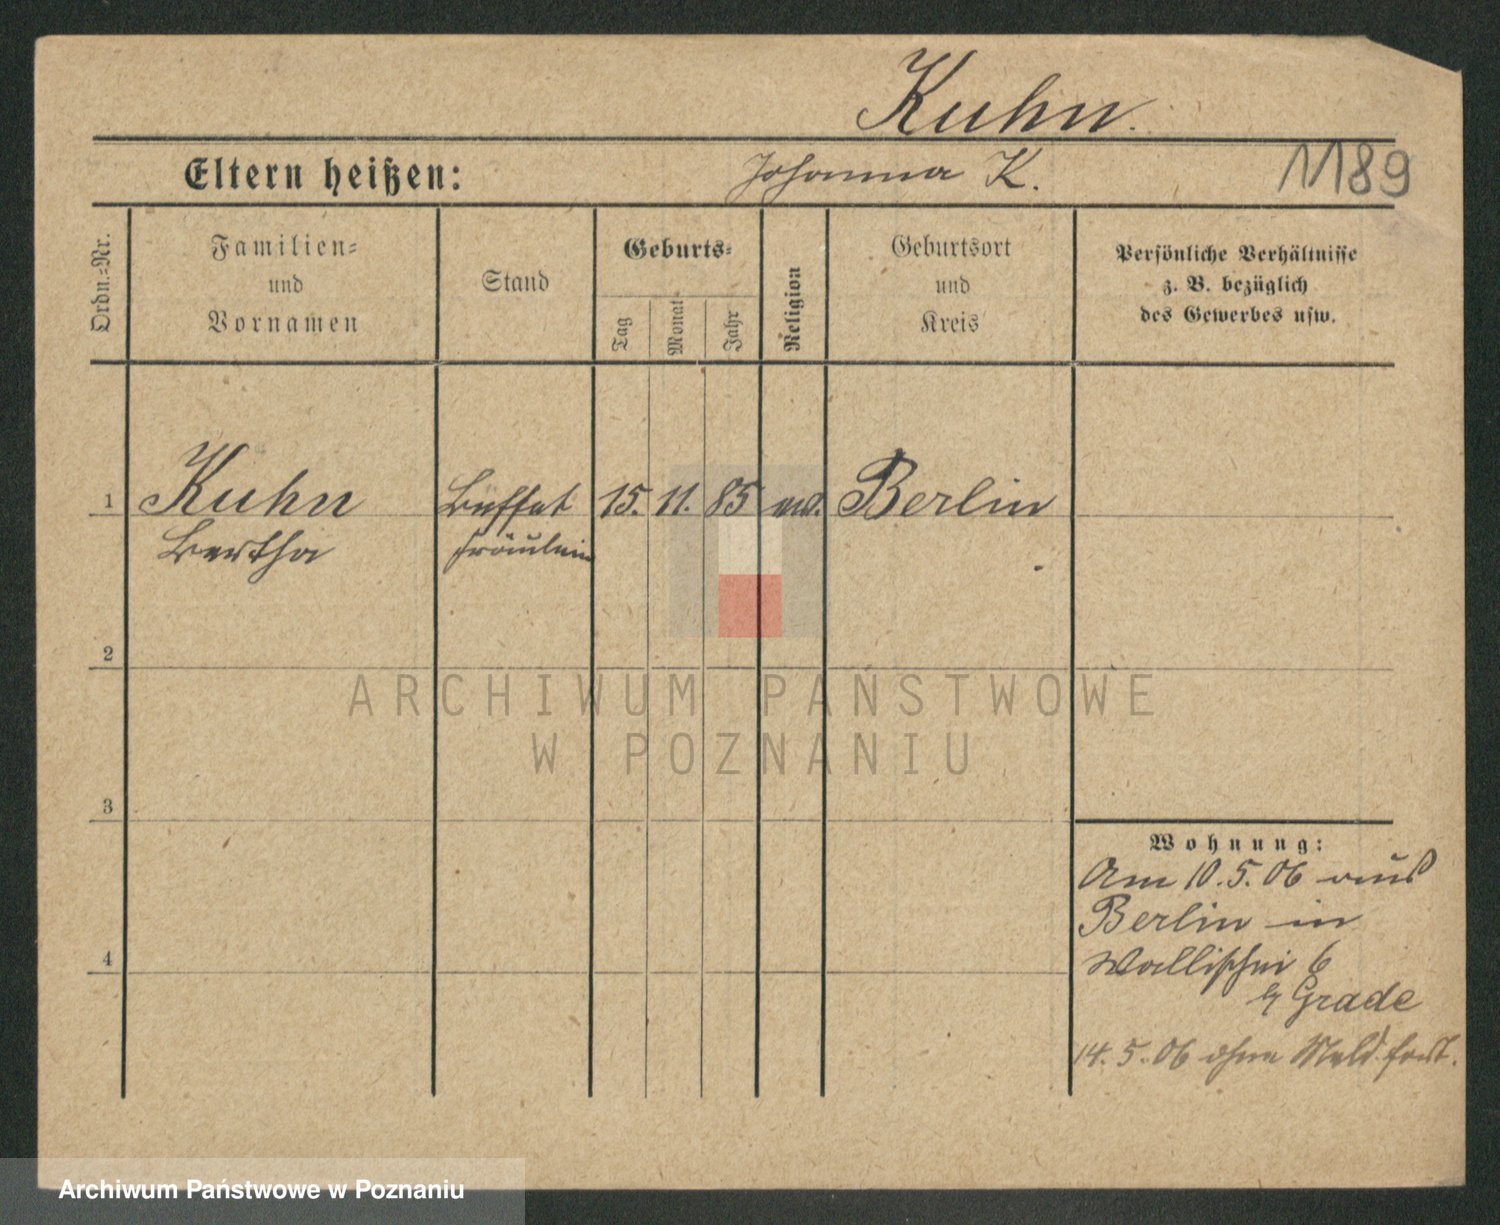 Kuhn.
Eltern heißen: Johanna K. 1189
Ordn.=Nr.
Familien=
und
Vornamen
Stand
Geburts=
Tag
Monat
Jahr
Religion
Geburtsort
und
Kreis
Persönliche Verhältnisse
z. B. bezüglich
des Gewerbes usw.
1 Kuhn Buffet 15. 11. 85 Berlin
Bertha fräulein
2
3
4
Wohnung:
Am 10.5.06 aus
Berlin in
Wallischei 6
b/ Grade
14.5.06 ohne Meld. fort.
ARCHIWUM PAŃSTWOWE
W POZNANIU
Archiwum Państwowe w Poznaniu